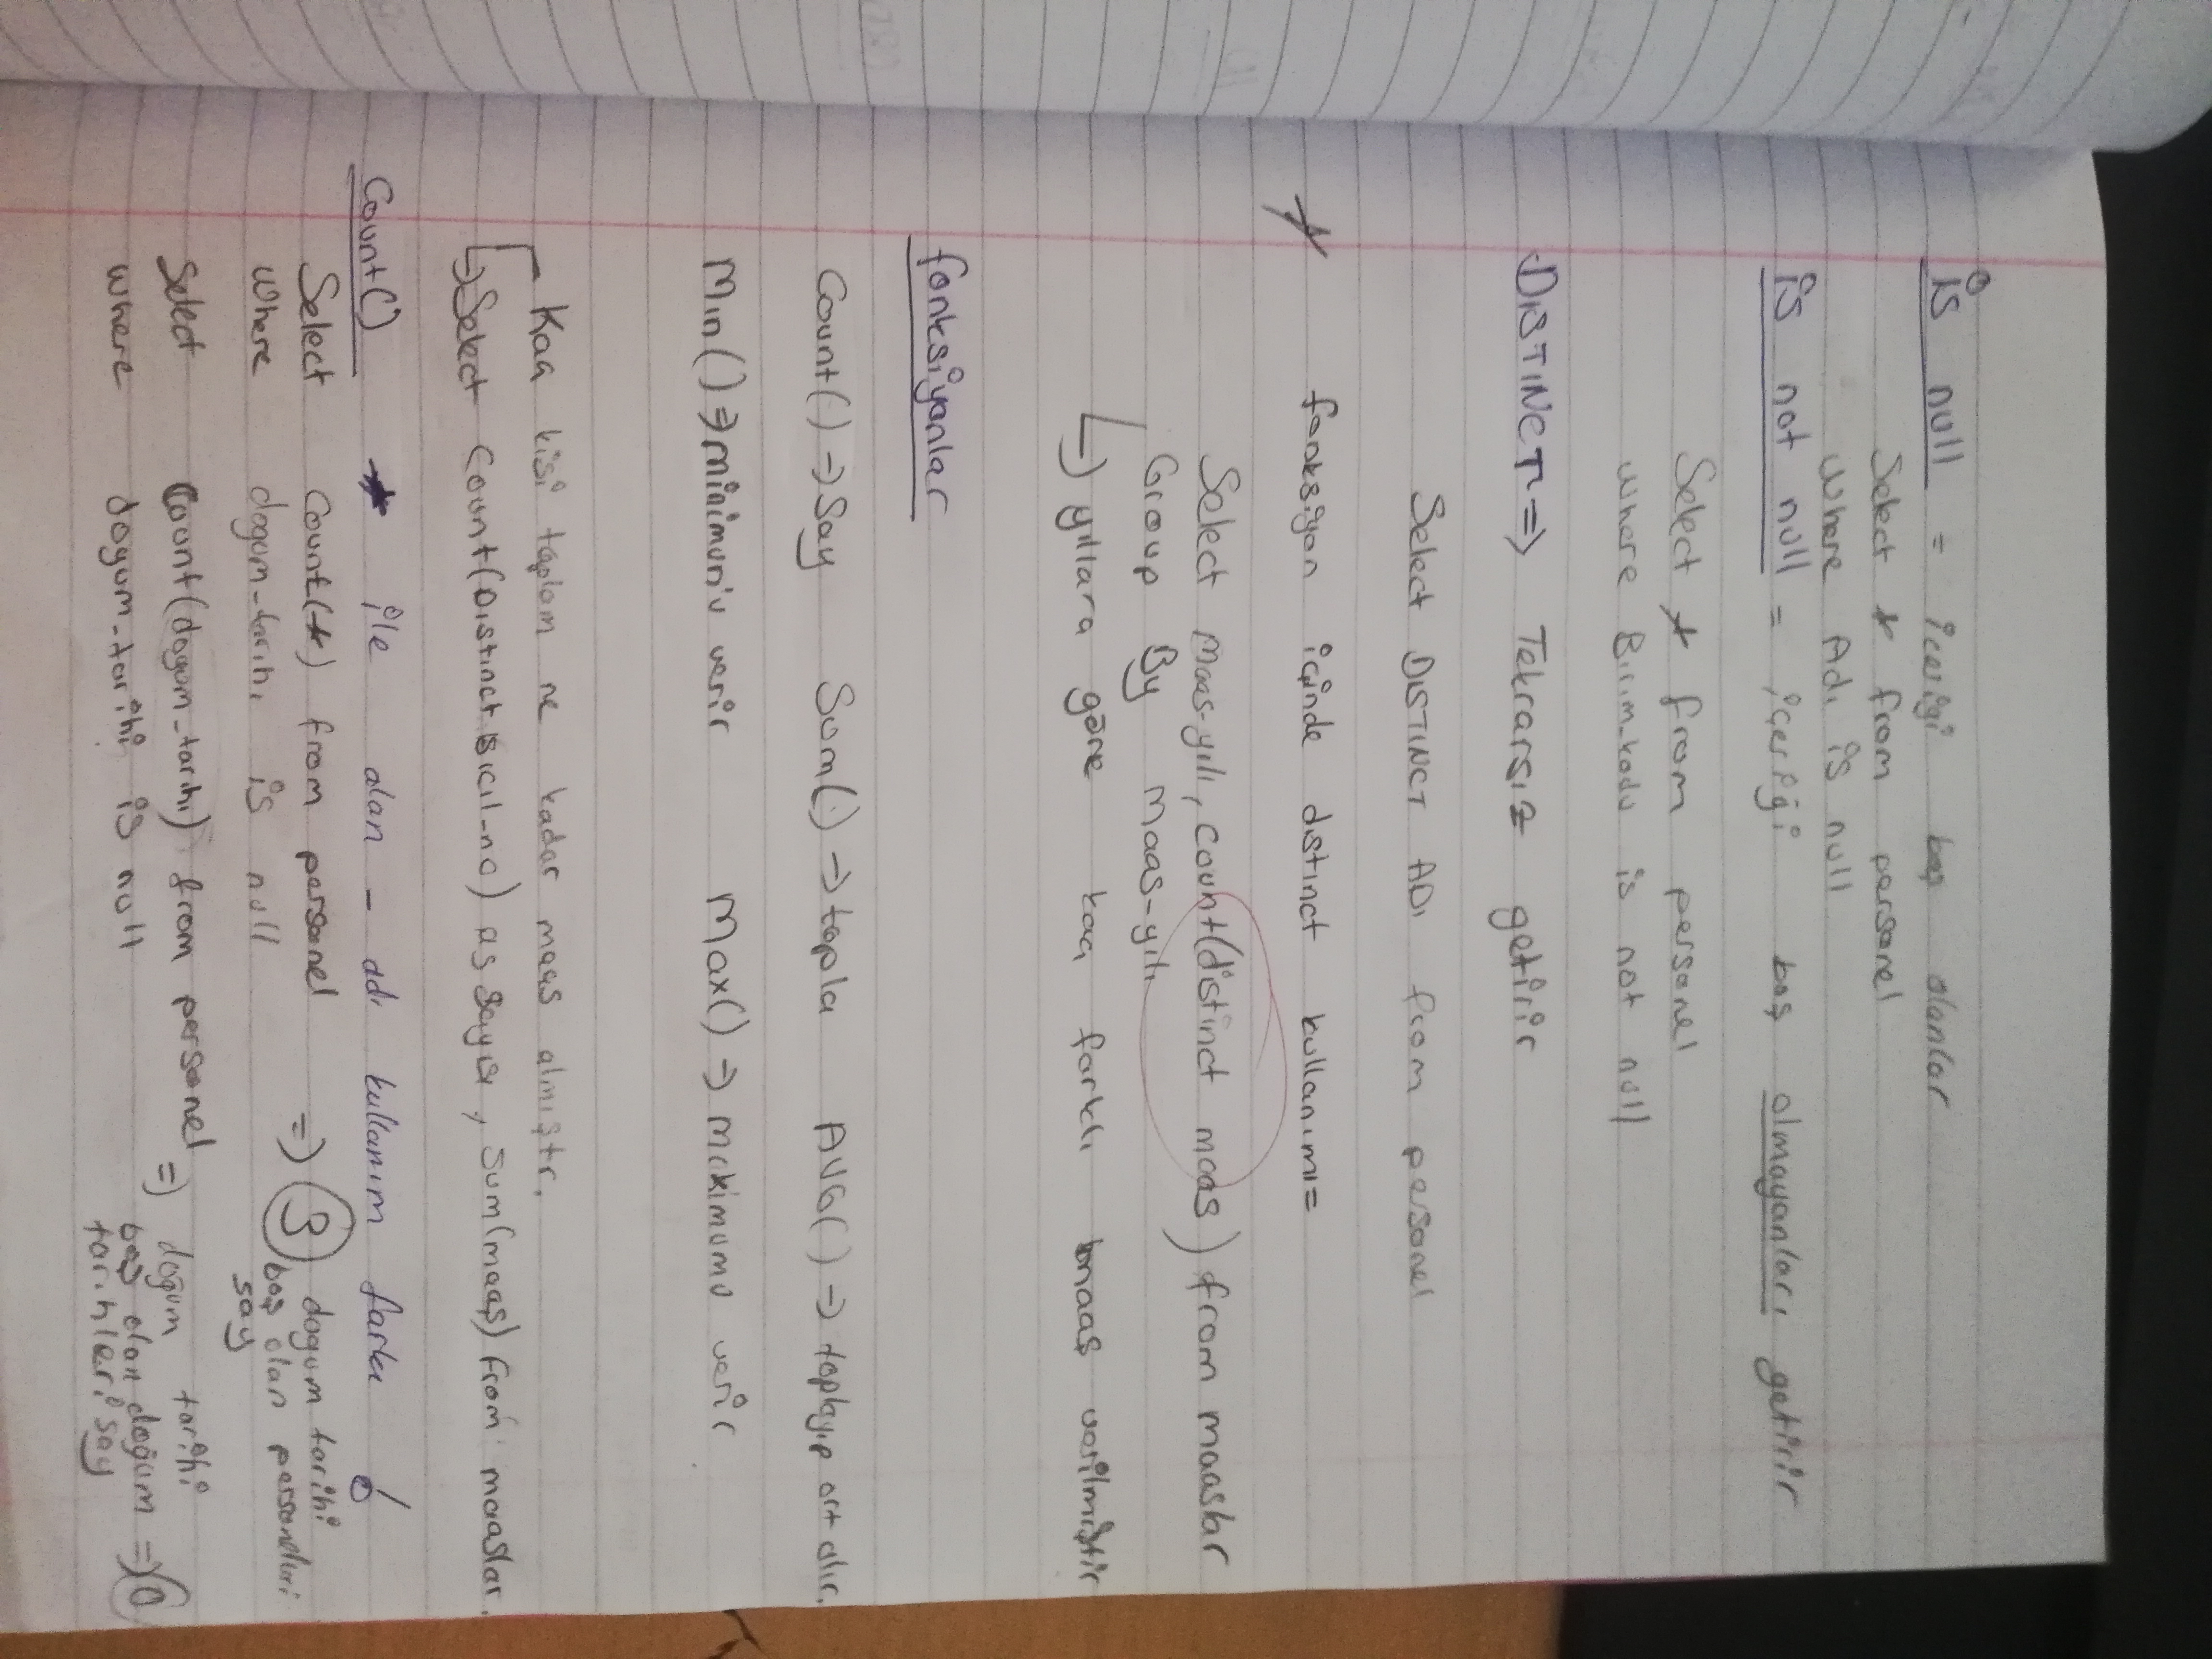 is null = içeriği boş olanlar
Select * from personel
Where Adı is null
is not null = içeriği boş olmayanları getirir
Select * from personel
where Birim_kodu is not null
DISTINCT => Tekrarsız getirir
Select DISTINCT ADI from personel
* fonksiyon içinde distinct kullanımı=
Select Maas-yılı, count(distinct maas) from maaslar
Group By Maas-yılı
↳ yıllara göre kaç farklı maaş verilmiştir
fonksiyonlar
Count() → Say Sum() → topla AVG() → toplayıp ort alır.
Min() → minimun'u verir Max() → makimumu verir
Kaç kisi toplam ne kadar maas almıştır.
→ Select Count(Distinct sicil-no) as sayısı, sum(maaş) from maaslar.
Count() * ile alan - adı kullanım farkı !
Select Count(*) from personel => 3 dogum tarihi
boş olan personelleri
Where dogum-tarihi is null
say
Select Count(dogum-tarihi) from personel => doğum tarihi
boş olan doğum => 0
where dogum-tarihi is null
tarihleri say